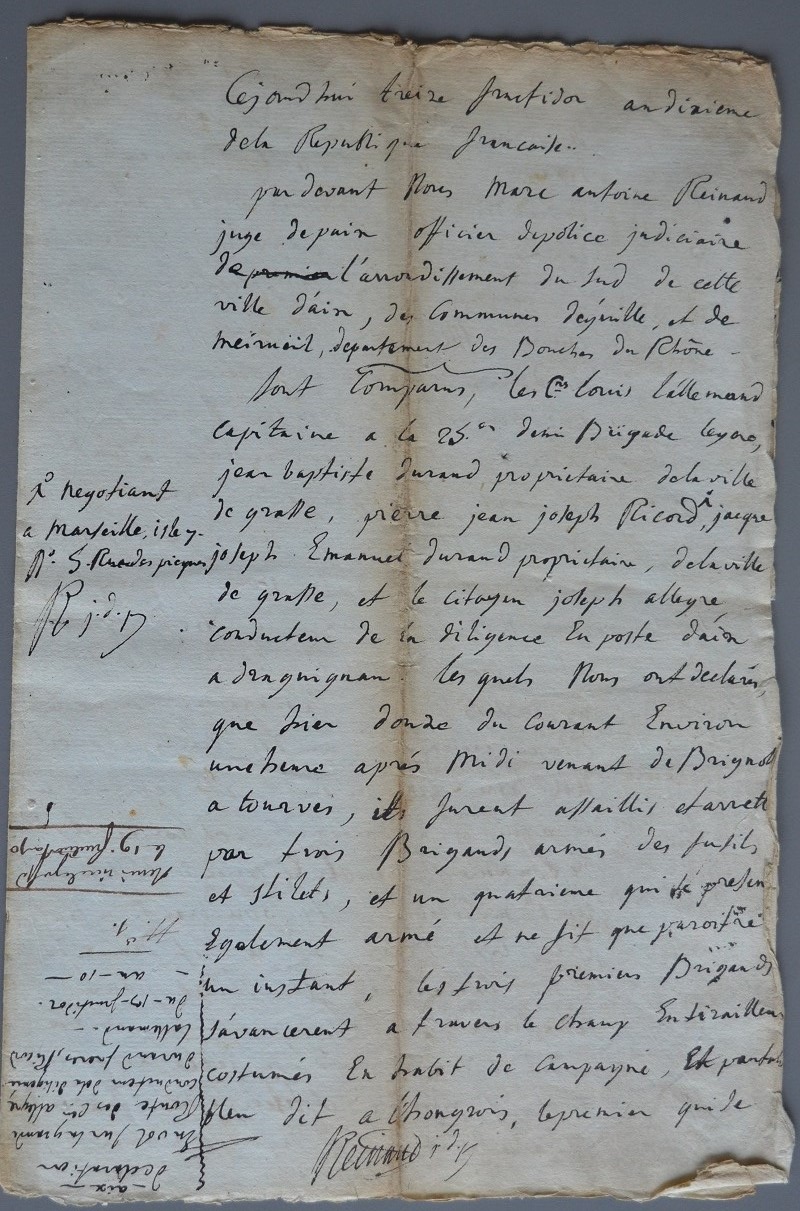 Cejourdhui treize fructidor an dixieme
dela Republique francaise..
par devant Nous Marc antoine Reinaud
juge depaix officier depolice judiciaire
de premier l'arrondissement du Sud de cette
ville d'aix, des Communes d'eyguille, et de
meirueil, departement des Bouches du Rhône -
Sont Comparus, les Cns louis lallemand
Capitaine a la 25.e demi Brigade legere,
jean baptiste durand proprietaire delaville
de grasse, pierre jean joseph Ricord, jacque
joseph Emanuel durand proprietaire, delaville
de grasse, et le citoyen joseph allegre
conducteur de la diligence En poste d'aix
a draguignan. lesquels Nous ont declarés,
que hier douze du courant Environ
une heure aprés Midi venant de Brignol
a tourves, ils furent assaillis et arreté
par trois Brigands armés des fusils
et stilets, et un quatrieme qui se presen
Egalement armé et ne fit que paroitre
un instant, les trois premiers Brigands
s'avancerent a travers le champ En tirailleur
costumés En habit de Campagne, Et pantal
bleu dit a l'hongrois, lepremier qui se
Reinaud j.d.p
negotiant
a Marseille, isle 7.
N.º 5. Rue des picques
R j.d.p
le 19 fructidor an 10
aix
declaration
En vol sur la grande
Route des Cn allegre
conducteur dela diligence
durand freres, Ricord
lallemand. -
du - 13 - fructidor.
- an - 10 -